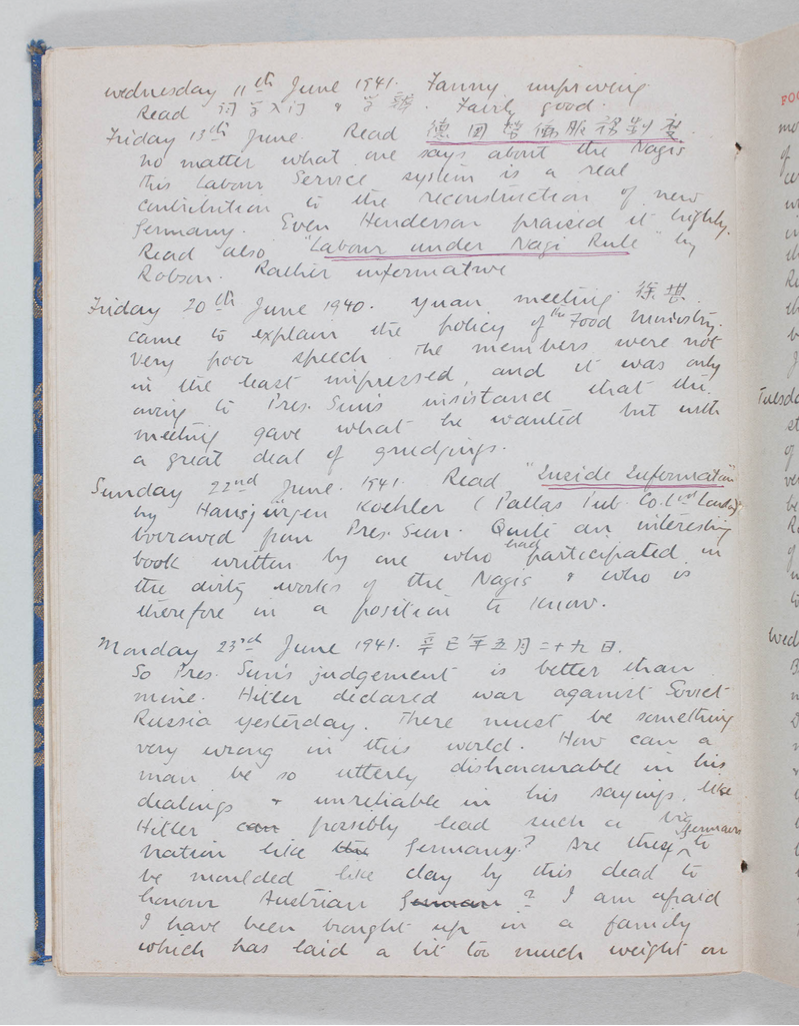 Wednesday 11th June 1941. Fanny improving
Read 入门 & . Fairly good.
Friday 13th June. Read 德国劳働服務制度.
No matter what one says about the Nazis
this Labour Service system is a real
contribution to the reconstruction of new
Germany. Even Henderson praised it highly.
Read also "Labour under Nazi Rule" by
Robson. Rather informative
Friday 20th June 1940. Yuan meeting 徐堪
came to explain the policy of the Food Ministry.
Very poor speech. The members were not
in the least impressed, and it was only
owing to Pres. Sun's insistand that the
meeting gave what he wanted but with
a great deal of grudgings.
Sunday 22nd June. 1941. Read "Inside Information"
by Hansjürgen Koehler (Pallas Pub. Co. Ltd London)
borrowed from Pres. Sun. Quite an interesting
book written by one who had participated in
the dirty works of the Nazis & who is
therefore in a position to know.
Monday 23rd June 1941. 辛巳年五月二十九日.
So Pres. Sun's judgement is better than
mine. Hitler declared war against Soviet
Russia yesterday. There must be something
very wrong in this world. How can a
man be so utterly dishonourable in his
dealings & unreliable in his sayings, like
Hitler can possibly lead such a big
nation like the Germany? Are they Germans to
be moulded like clay by this dead to
honour Austrian German? I am afraid
I have been brought up in a family
which has laid a bit too much weight on
FOO
Tuesda
Wed